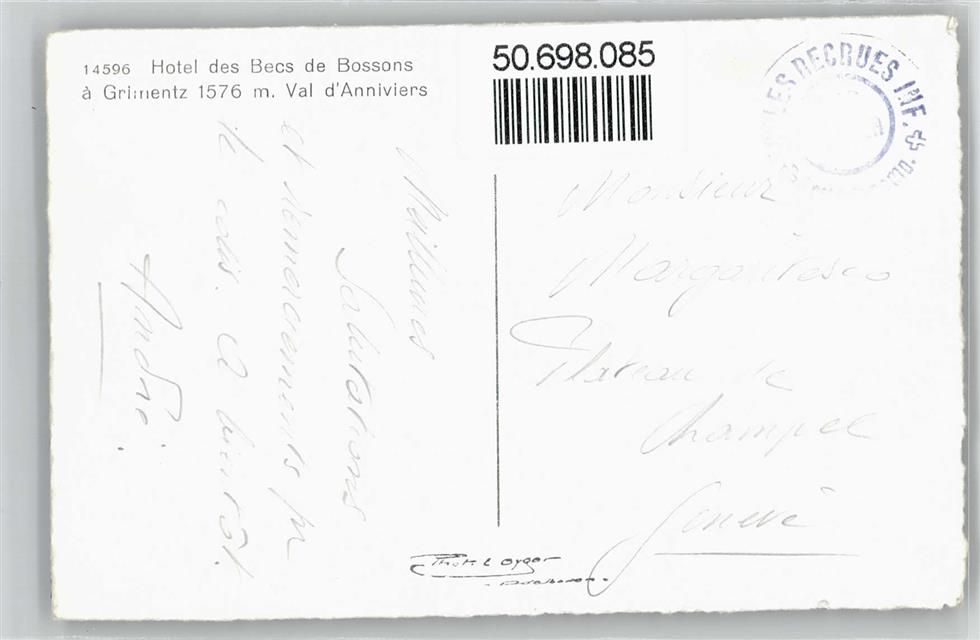 14596 Hotel des Becs de Bossons
à Grimentz 1576 m. Val d'Anniviers
50.698.085
LES RECRUES INF. +
Meilleures
Salutations
et remerciements pr
le colis. A bientôt.
André.
Monsieur
Plateau de
Champel
Genève
Phot. L Gyger
Adelboden